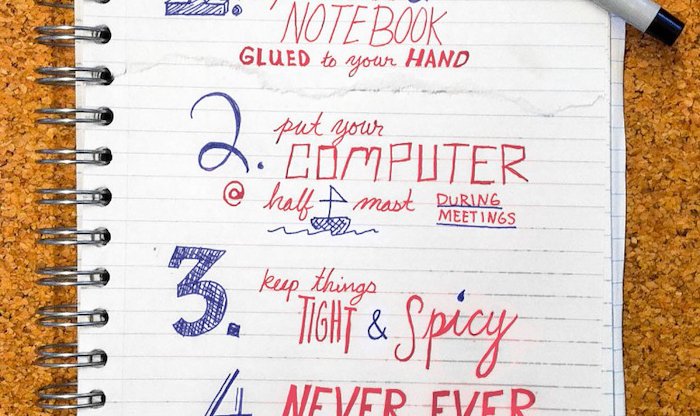 NOTEBOOK
GLUED to your HAND
2. put your
COMPUTER
@ half mast DURING
MEETINGS
3. keep things
TIGHT & Spicy
4 NEVER EVER